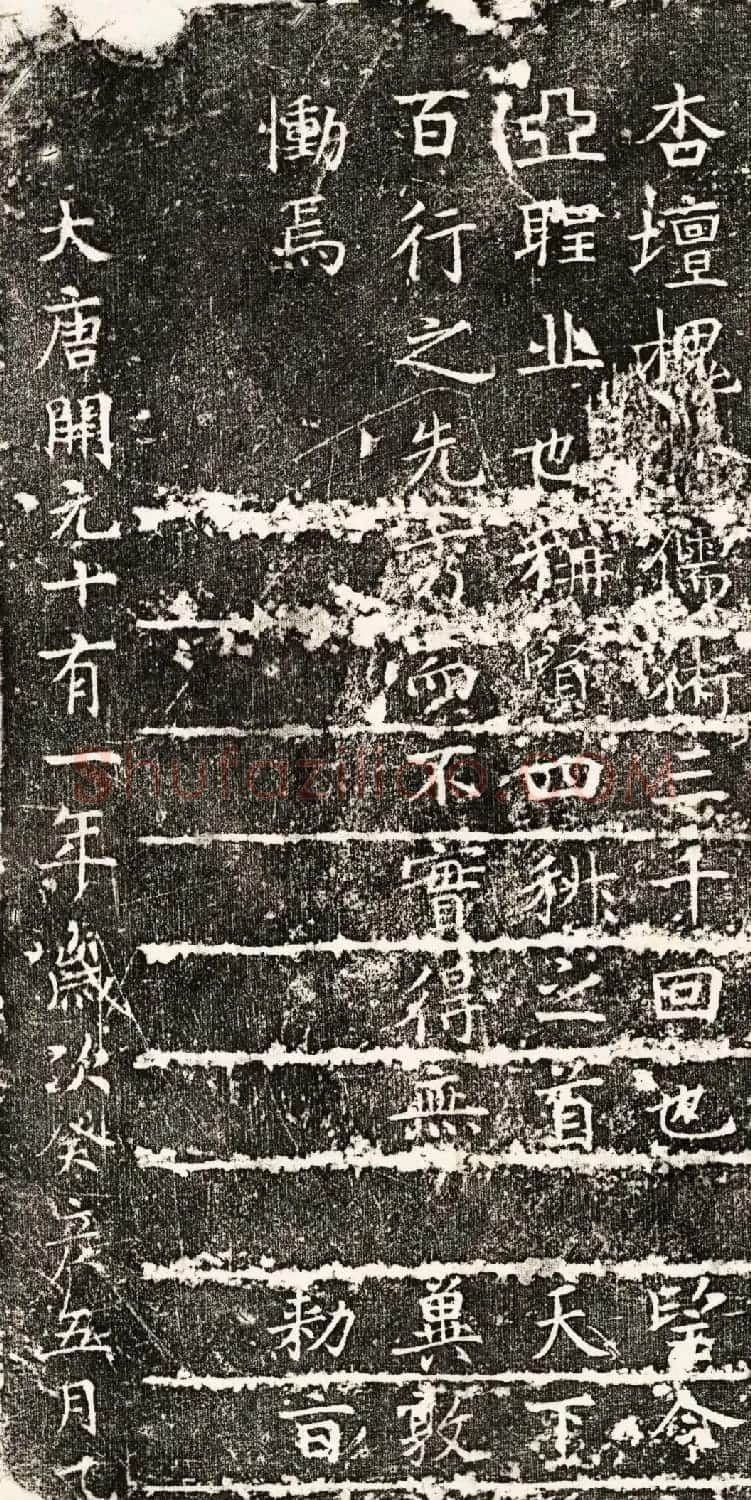 杏壇槐儒術三千回也令
亞聖丘也稱賢四科之首天王
百行之先秀而不實得無冀敦
慟焉勅旨
大唐開元十有一年歲次癸亥五月七
Shufaziliao.COM